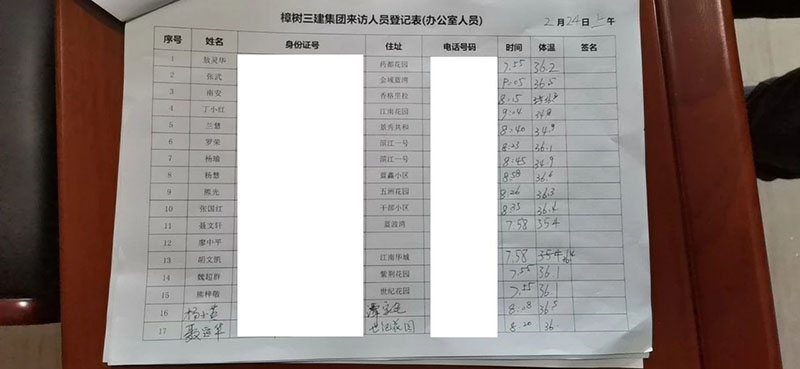 樟树三建集团来访人员登记表(办公室人员) 2月24日上午
序号 姓名 身份证号 住址 电话号码 时间 体温 签名
1 敖灵华 药都花园 7.55 36.2
2 张武 金域蓝湾 8.05 36.5
3 南安 香格里拉 8:15
4 丁小红 江南花园 9:04 34.8
5 兰慧 景秀共和 8:40 34.9
6 罗荣 滨江一号 8:23 36.1
7 杨瑜 滨江一号 8:45 34.9
8 杨慧 益鑫小区 8.58 36.6
9 熊光 五洲花园 8.26 36.3
10 张国红 干部小区 8.35 36.4
11 聂文轩 蓝波湾 7.58 35.4
12 廖中平
13 胡文凯 江南华城 7.58
14 魏超群 紫荆花园 7.55 36.1
15 熊梓敬 世纪花园 7.55 36.1
16 杨小英 8:08 36.5
17 聂运华 世纪花园 8:20 36.